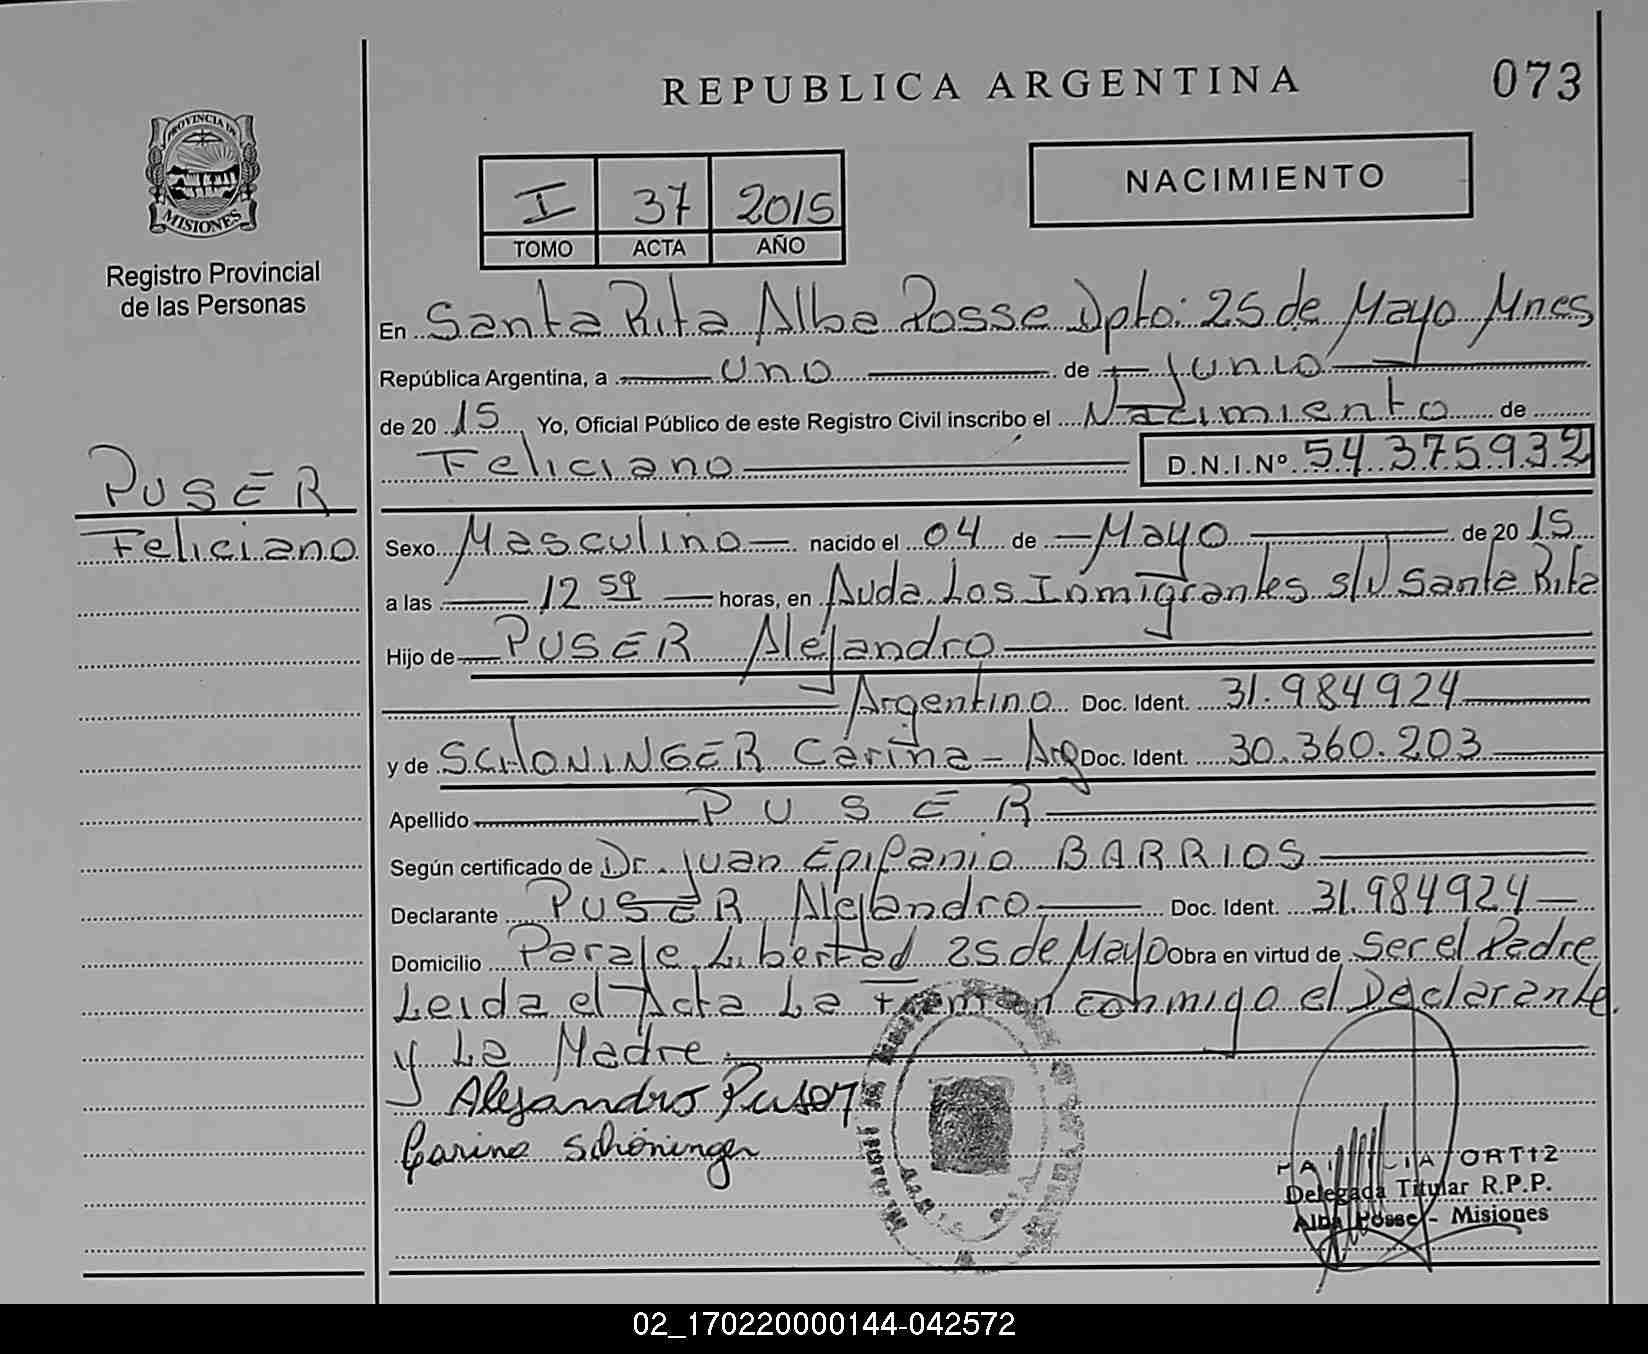 REPUBLICA ARGENTINA
073
PROVINCIA DE
MISIONES
Registro Provincial
de las Personas
I 37 2015
TOMO ACTA AÑO
NACIMIENTO
En Santa Rita Alba Posse Dpto: 25 de Mayo Mnes
República Argentina, a uno de Junio
de 20 15 Yo, Oficial Público de este Registro Civil inscribo el Nacimiento de
Feliciano D.N.I.Nº 54 375932
PUSER
Feliciano
Sexo Masculino nacido el 04 de Mayo de 20 15
a las 12 59 horas, en Avda. Los Inmigrantes s/N Santa Rita
Hijo de PUSER Alejandro
Argentino Doc. Ident. 31.984924
y de SCHONINGER Carina - Arg Doc. Ident. 30.360.203
Apellido PUSER
Según certificado de Dr. Juan Epifanio BARRIOS
Declarante PUSER Alejandro Doc. Ident. 31.984924
Domicilio Paraje Libertad 25 de Mayo Obra en virtud de Ser el Padre
Leida el Acta La Firman conmigo el Declarante
y La Madre
Alejandro Puser
Carina Schöninger
ORTIZ
Delegada Titular R.P.P.
Alba Posse - Misiones
02_170220000144-042572